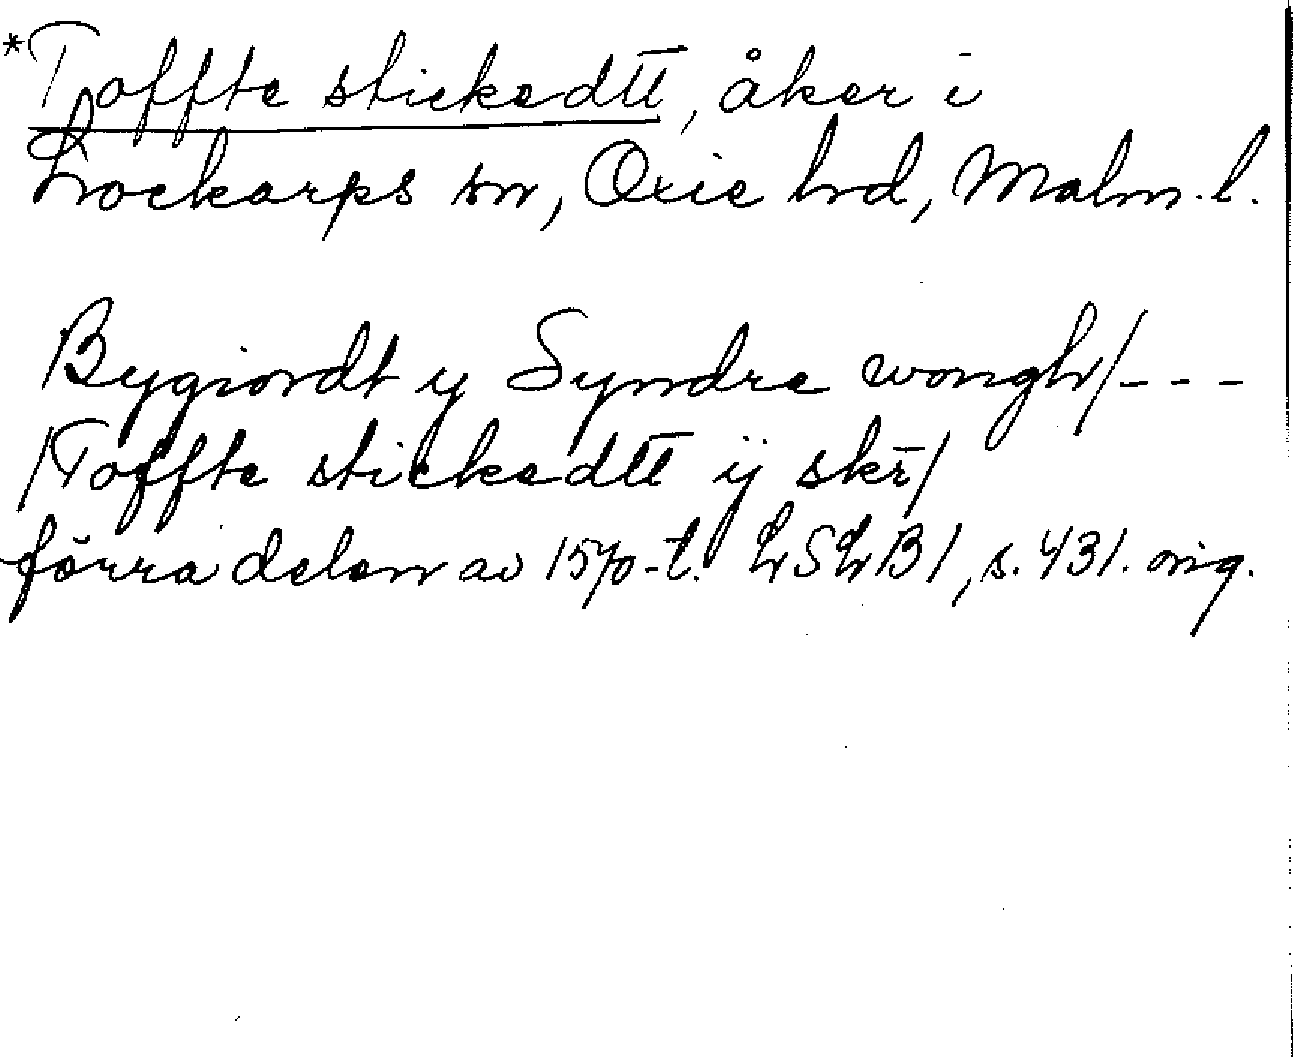 *Toffte stickedtt, åker i
Lockarps sn, Oxie hd, Malm. l.
Bygiordt y Syndre wongh/---
/Toffte stickedtt ij skr̄/
förra delen av 1570-t. LSLB1, s. 431. orig.